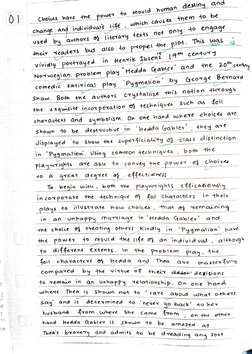 01
Choices have the power to mould human destiny and
change and individuals life, which causes them to be
used by authors of literary texts not only to engage
their readers but also to propel the plot. This was
vividly portrayed in Henrik Ibsens' 19th century
Norwegian problem play 'Hedda Gabler' and the 20th century
comedic satirical play 'Pygmalion' by George Bernard
Shaw. Both the authors crystallize this notion through
the exquisite incorporation of techniques such as foil
characters and symbolism. On one hand where choices are
shown to be destructive in 'Hedda Gabler', they are
displayed to show the superficiality of class distinction
in 'Pygmalion'. Using common techniques, both the
playwrights are able to convey the power of choices
to a great degree of effectiveness.
To begin with, both the playwrights efficaciously
incorporate the technique of foil characters in their
plays to illustrate how choices, that of remaining
in an unhappy marriage in 'Hedda Gabler' and
the choice of treating others kindly in 'Pygmalion' have
the power to mould the life of an individual, although
to different extents. In the problem play, the
foil characters of Hedda and Thea are masterfully
compared by the virtue of their decisions
to remain in an unhappy relationship. On one hand
where Thea is shown not to 'care about what others
say' and is determined to 'never go back' to her
husband from where she came from, on the other
hand Hedda Gabler is shown to be amazed at
Thea's bravery and admits to be dreading any sort